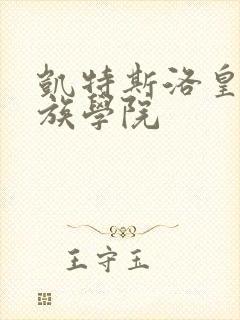 凱特斯洛皇
族學院
王守玉